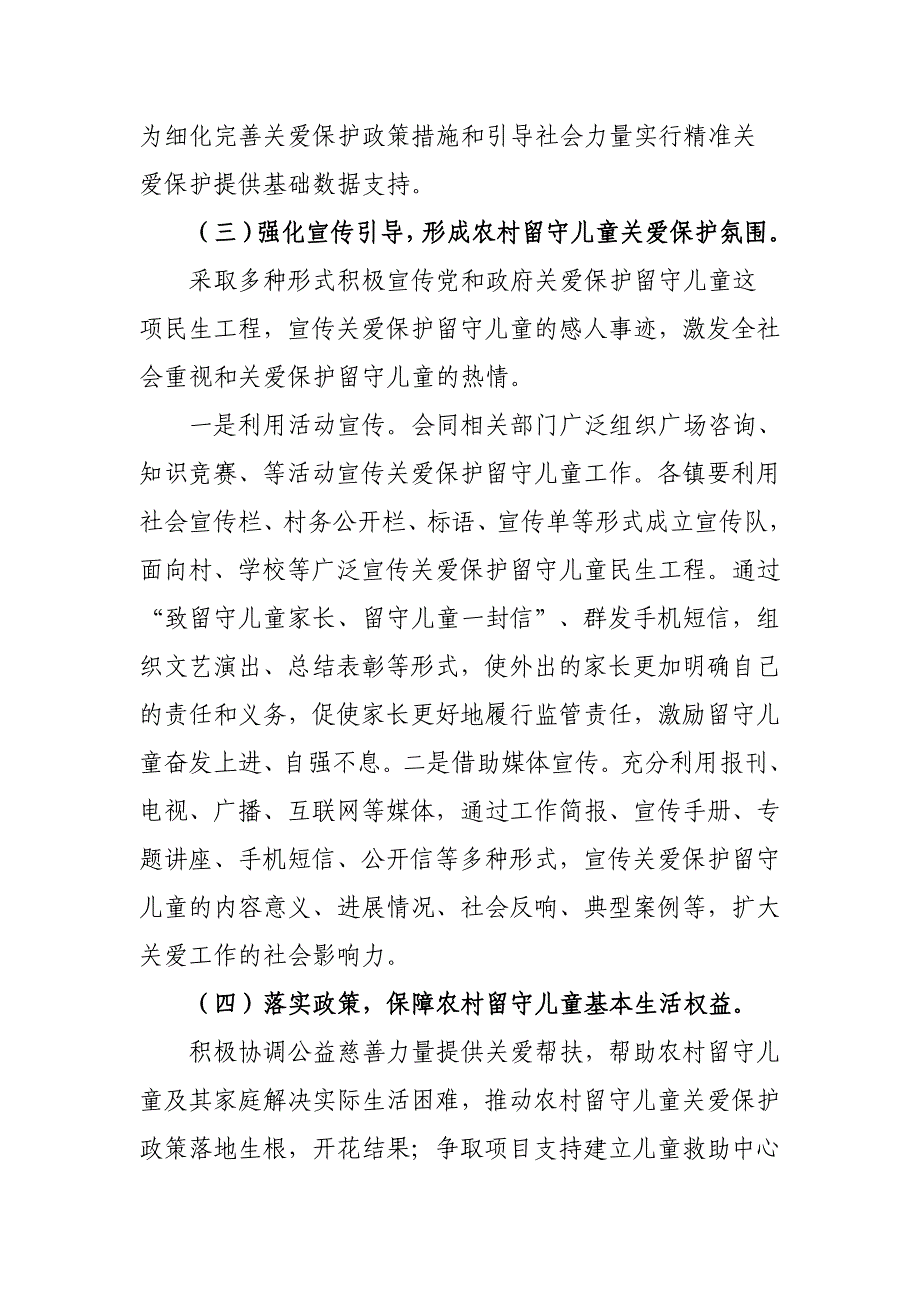 为细化完善关爱保护政策措施和引导社会力量实行精准关
爱保护提供基础数据支持。
（三）强化宣传引导，形成农村留守儿童关爱保护氛围。
采取多种形式积极宣传党和政府关爱保护留守儿童这
项民生工程，宣传关爱保护留守儿童的感人事迹，激发全社
会重视和关爱保护留守儿童的热情。
一是利用活动宣传。会同相关部门广泛组织广场咨询、
知识竞赛、等活动宣传关爱保护留守儿童工作。各镇要利用
社会宣传栏、村务公开栏、标语、宣传单等形式成立宣传队，
面向村、学校等广泛宣传关爱保护留守儿童民生工程。通过
“致留守儿童家长、留守儿童一封信”、群发手机短信，组
织文艺演出、总结表彰等形式，使外出的家长更加明确自己
的责任和义务，促使家长更好地履行监管责任，激励留守儿
童奋发上进、自强不息。二是借助媒体宣传。充分利用报刊、
电视、广播、互联网等媒体，通过工作简报、宣传手册、专
题讲座、手机短信、公开信等多种形式，宣传关爱保护留守
儿童的内容意义、进展情况、社会反响、典型案例等，扩大
关爱工作的社会影响力。
（四）落实政策，保障农村留守儿童基本生活权益。
积极协调公益慈善力量提供关爱帮扶，帮助农村留守儿
童及其家庭解决实际生活困难，推动农村留守儿童关爱保护
政策落地生根，开花结果；争取项目支持建立儿童救助中心